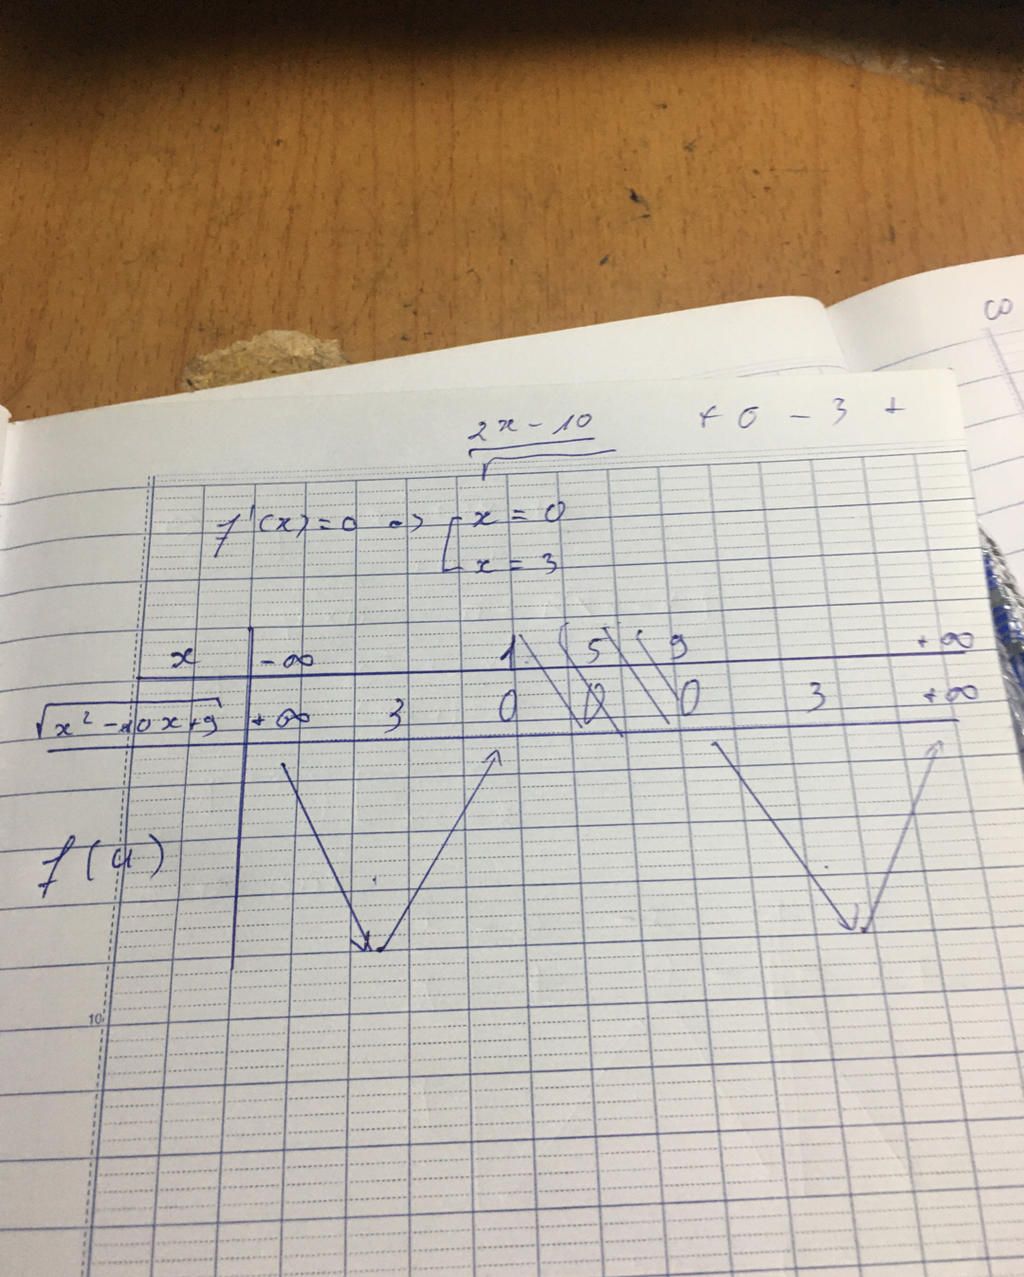 2x - 10 + 0 - 3 +
√
f'(x) = 0 => [ x = 0
x = 3
x -∞ 1 5 9 +∞
√x² - 10x + 9 +∞ 3 0 0 0 3 +∞
f(u)
10
∞